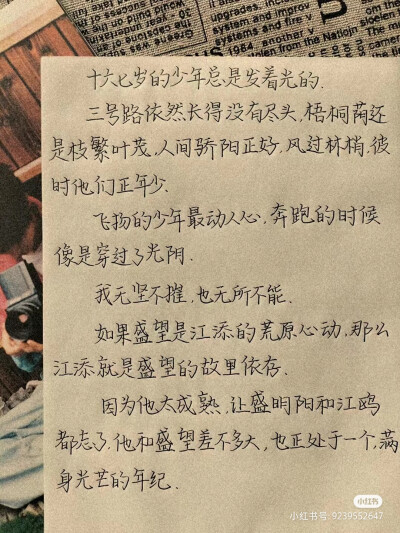 upgrades, inc
system and improv
systems and fire v
1984, another
from the Natlojn
十六七岁的少年总是发着光的.
三号路依然长得没有尽头,梧桐荫还
是枝繁叶茂,人间骄阳正好,风过林梢,彼
时他们正年少.
飞扬的少年最动人心,奔跑的时候
像是穿过了光阴.
我无坚不摧,也无所不能.
如果盛望是江添的荒原心动,那么
江添就是盛望的故里依存.
因为他太成熟,让盛明阳和江鸥
都忘了,他和盛望差不多大,也正处于一个,满
身光芒的年纪.
小红书
小红书号: 9239552647